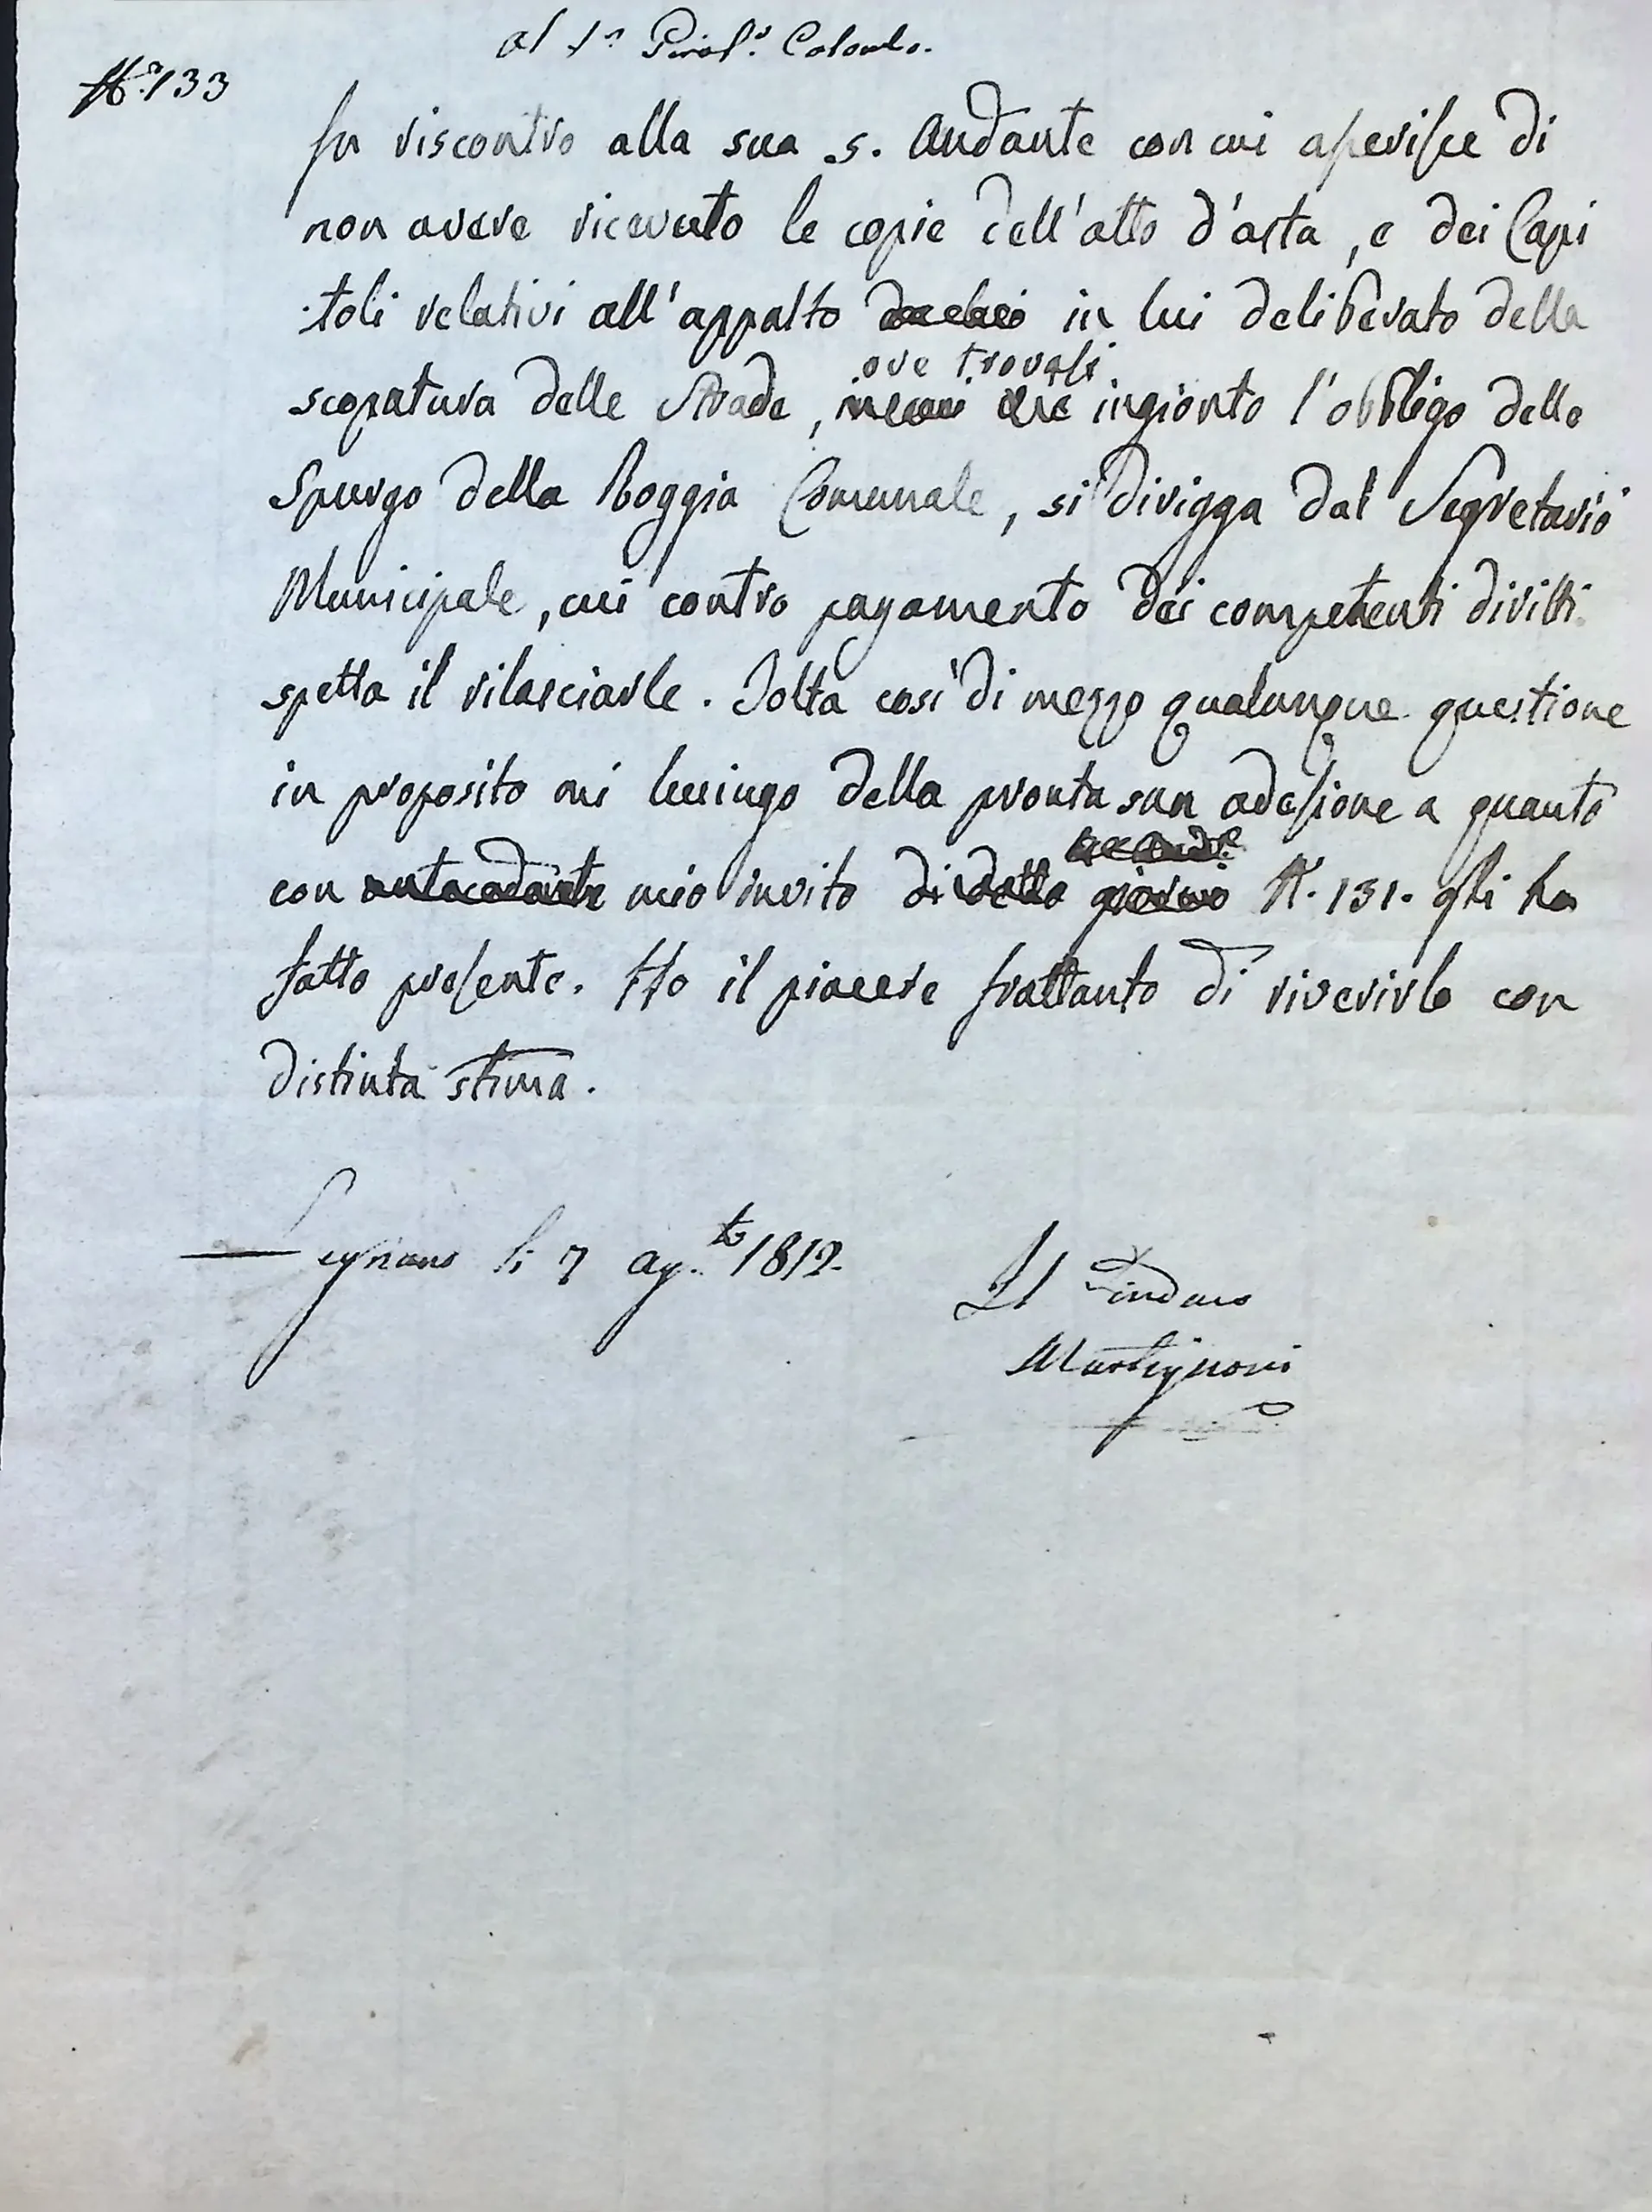 al S.r Girol.o Colombo.
N.o 133
In riscontro alla sua s. Andante con cui asserisce di
non avere ricevuto le copie dell'atto d'asta, e dei Capi
toli relativi all'appalto in lui deliberato della
ove trovasi
scopatura delle Strade, ingionto l'obbligo dello
Spurgo della Roggia Comunale, si dirigga dal Segretario
Municipale, cui contro pagamento dei competenti diritti
spetta il rilasciarle. Tolta così di mezzo qualunque questione
in proposito mi lusingo della pronta sua adesione a quanto
con antecedente mio invito di detto giorno N. 131. gli ho
fatto presente. Ho il piacere frattanto di riverirlo con
distinta stima.
Legnano li 7 ag.to 1812.
Il Sindaco
Martignoni